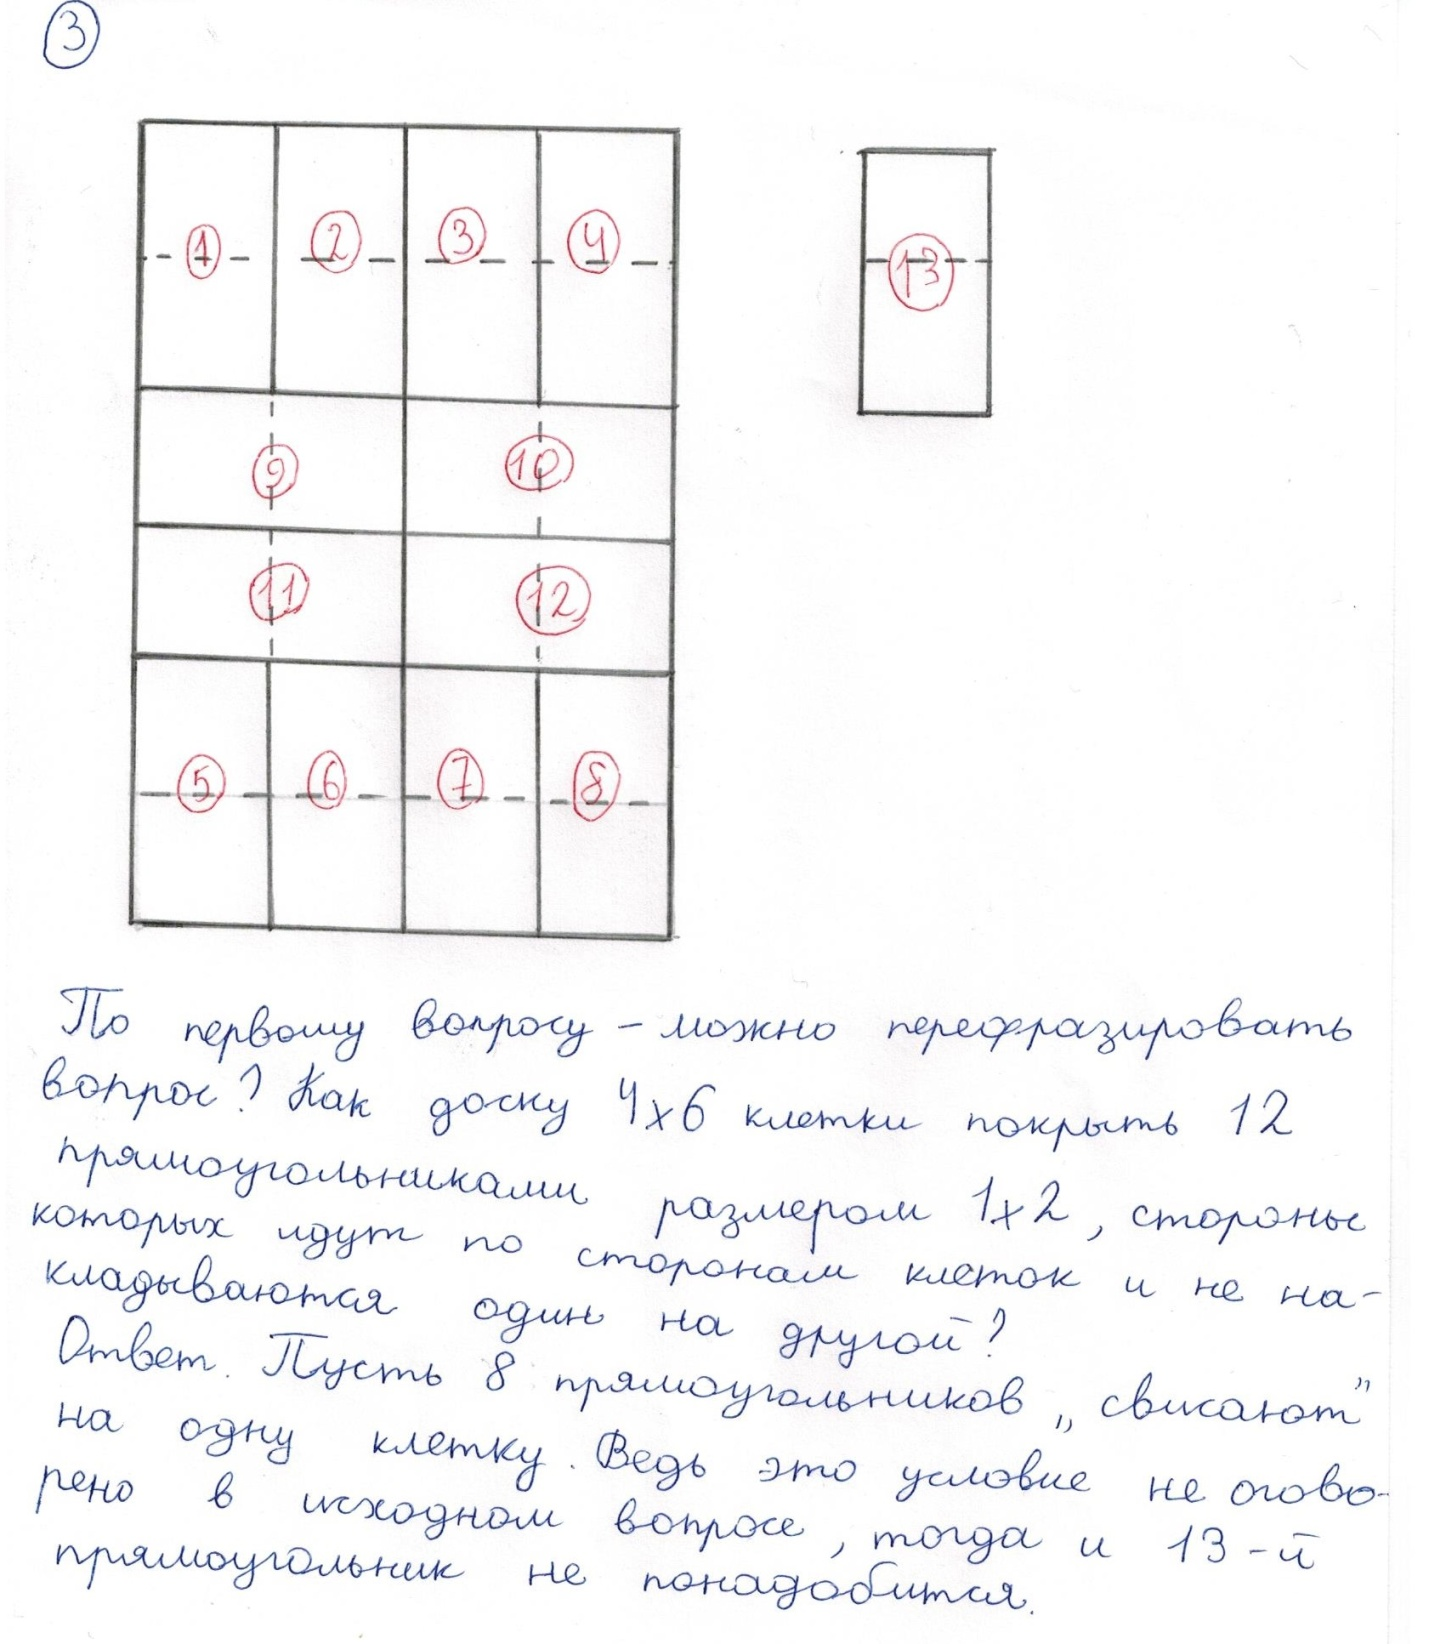 3
1 2 3 4 13
9 10
11 12
5 6 7 8
По первому вопросу – можно перефразировать
вопрос? Как доску 4х6 клетки покрыть 12
прямоугольниками размером 1х2, стороны
которых идут по сторонам клеток и не на-
кладываются один на другой?
Ответ. Пусть 8 прямоугольников „свисают”
на одну клетку. Ведь это условие не огово-
рено в исходном вопросе, тогда и 13-й
прямоугольник не понадобится.